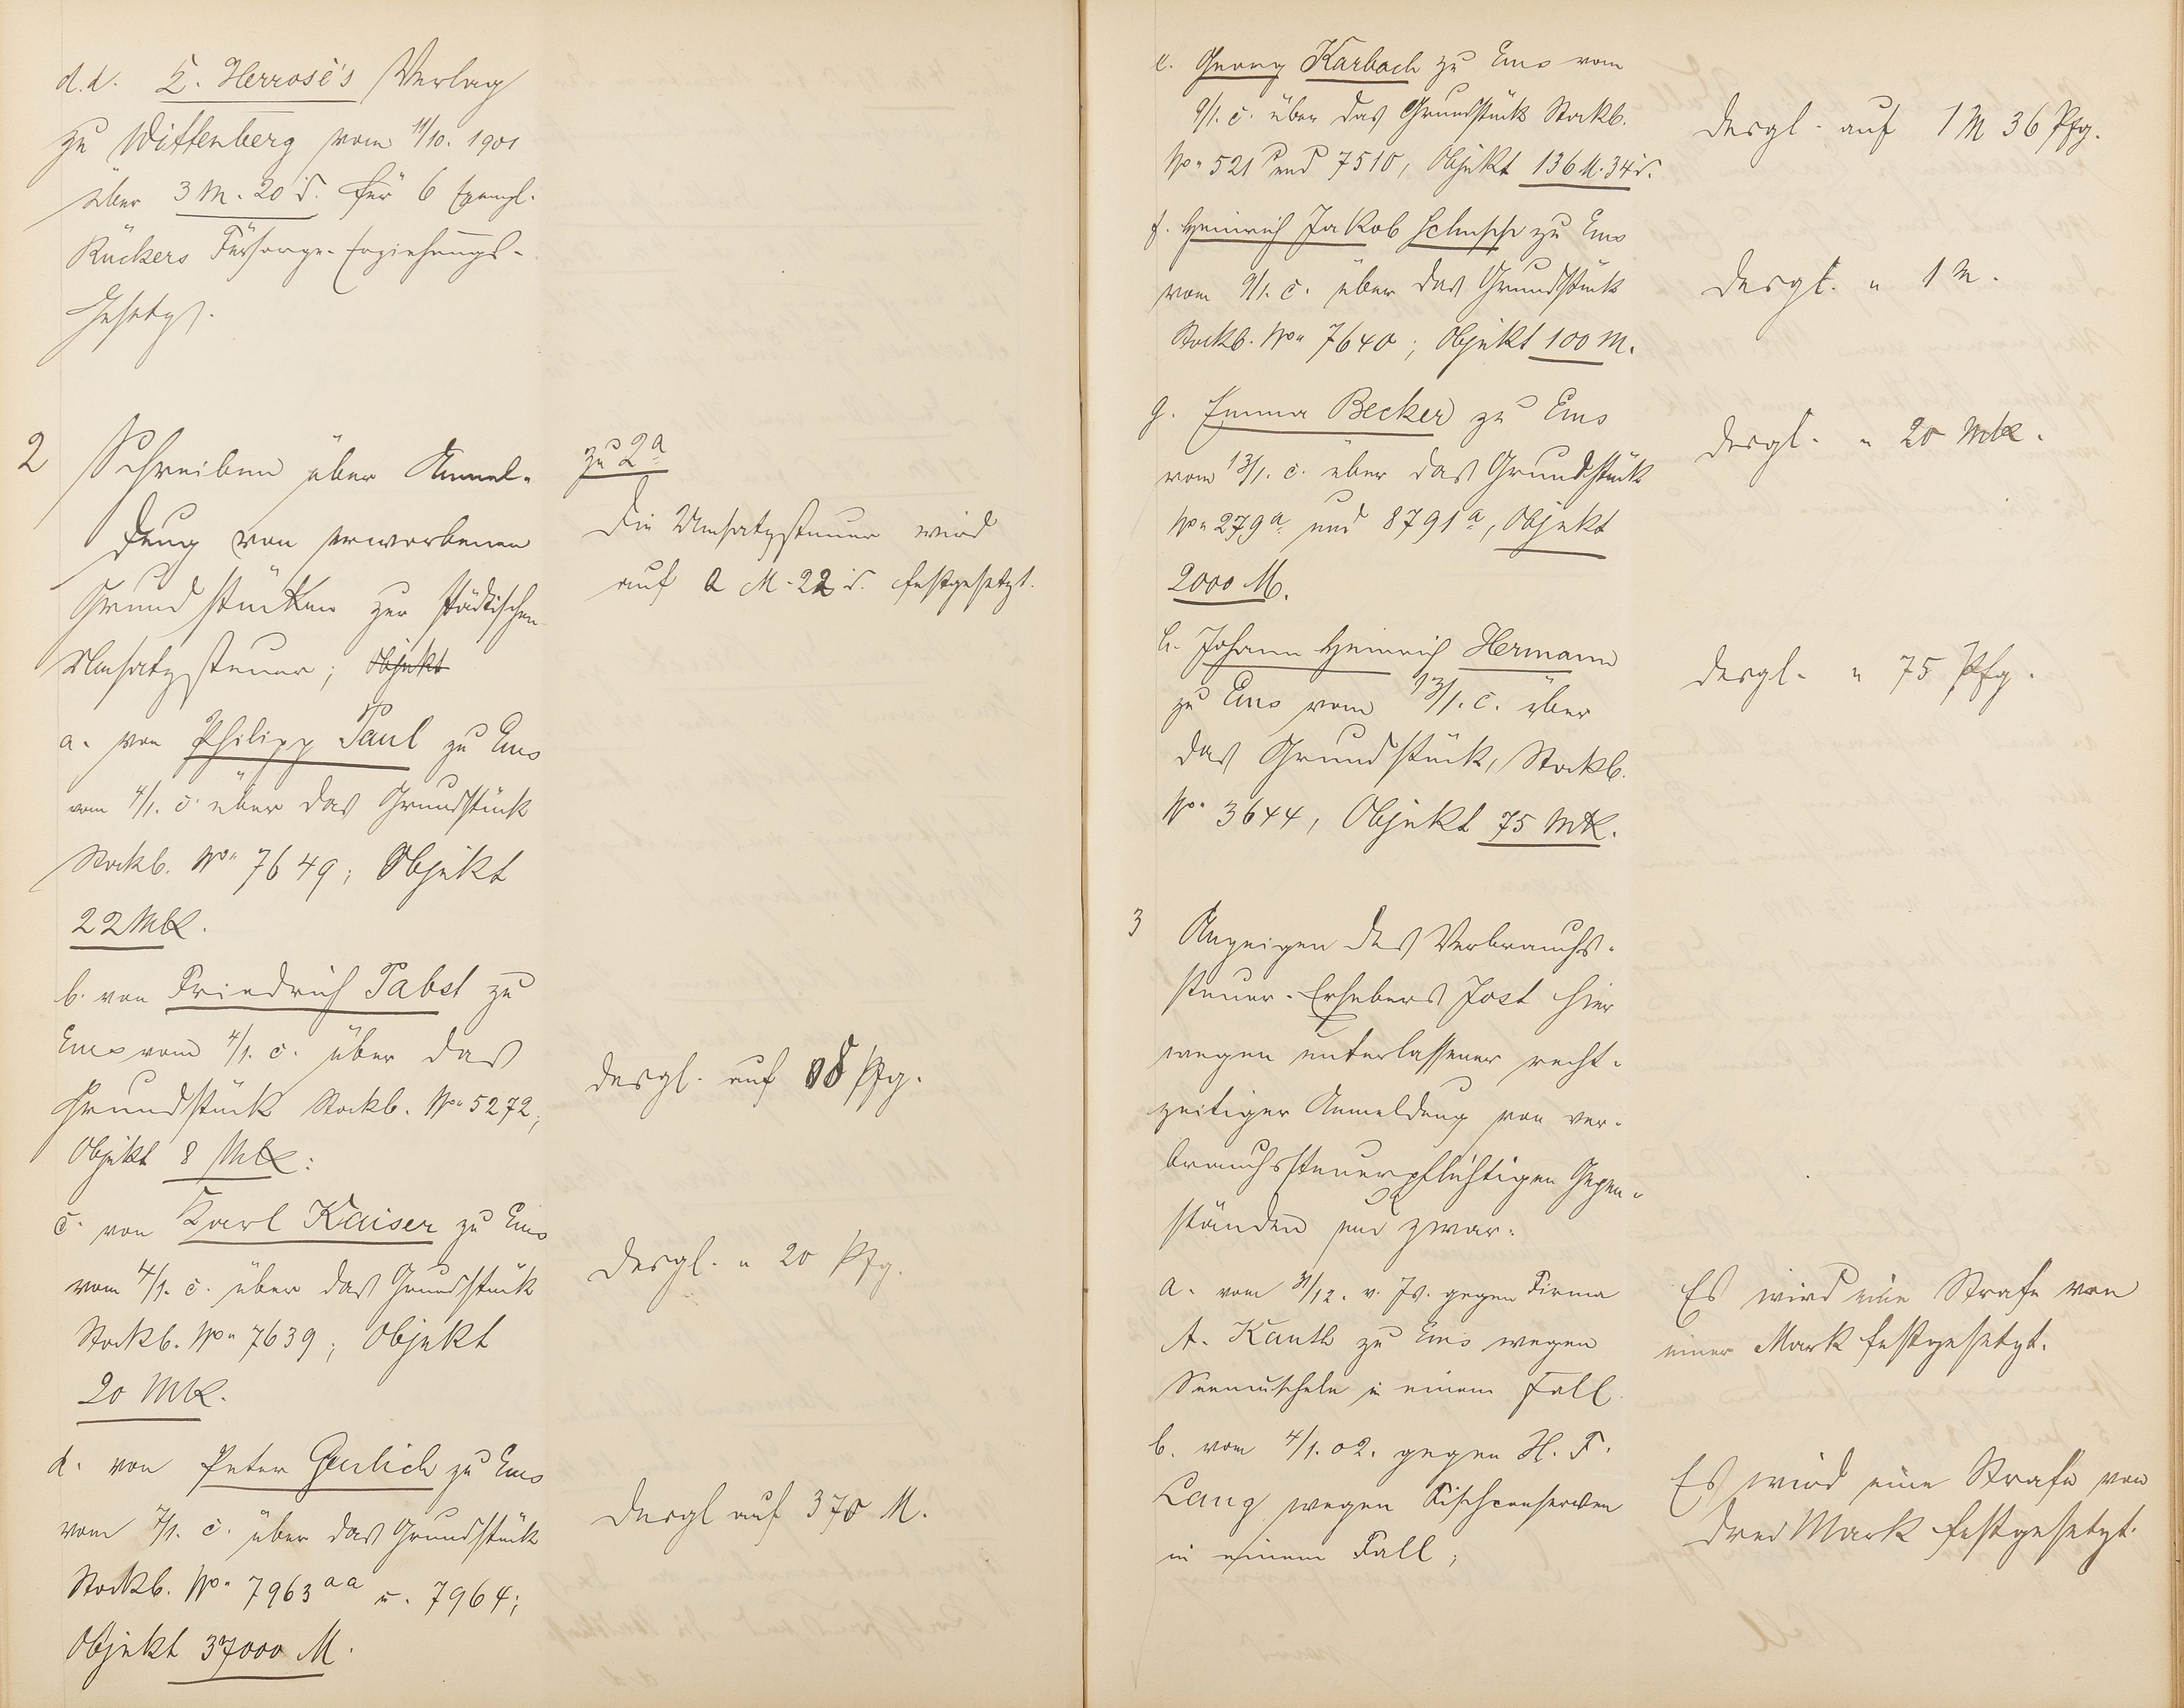 d.d. R. Herrosé's Verlag
zu Wittenberg vom 11/10. 1901
über 3 M. 20 d. für 6 Exempl.
Rückers Fürsorge-Erziehungs-
Gesetz.
2 Schreiben über Anmel-
dung von erworbenen
Grundstücken zur städtischen
Umsatzsteuer; Objekt
a. von Philipp Paul zu Ems
vom 4/1. c. über das Grundstück
Stockb. No. 7649; Objekt
22 Mk.
b. von Friedrich Pabst zu
Ems vom 4/1. c. über das
Grundstück Stockb. No. 5272;
Objekt 8 Mk:
c. von Karl Kaiser zu Ems
vom 4/1. c. über das Grundstück
Stockb. No. 7639; Objekt
20 Mk.
d. von Peter Gerlich zu Ems
vom 7/1. c. über das Grundstück
Stockb. No. 7963 aa u. 7964;
Objekt 37000 M.
zu 2a
Die Umsatzsteuer wird
auf 0 M. 22 d. festgesetzt.
desgl. auf 08 Pfg.
desgl. " 20 Pfg.
desgl auf 370 M.
e. Georg Karbach zu Ems vom
9/1. c. über das Grundstück Stockb.
No. 521 und 7510, Objekt 136 M. 34 d.
f. Heinrich Jakob zu Ems
vom 9/1. c. über das Grundstück
Stockb. No. 7640; Objekt 100 M.
g. Emma Becker zu Ems
vom 13/1. c. über das Grundstück
No. 279a und 8791a, Objekt
2000 M.
h. Johann Heinrich Hermann
zu Ems vom 13/1. c. über
das Grundstück, Stockb.
No. 3644, Objekt 75 Mk.
3 Anzeigen des Verbrauchs-
steuer-Erhebers Jost hier
wegen unterlassener recht-
zeitiger Anmeldung von ver-
brauchssteuerpflichtigen Gegen-
ständen und zwar:
a. vom 31/12. v. Js. gegen Firma
A. Kauth zu Ems wegen
Seemuscheln in einem Fall
b. vom 4/1. 02. gegen H. F.
Lang wegen Fischconserven
in einem Fall;
desgl. auf 1 M 36 Pfg.
desgl. " 1 M.
desgl. " 20 Mk.
desgl. " 75 Pfg.
Es wird eine Strafe von
einer Mark festgesetzt.
Es wird eine Strafe von
drei Mark festgesetzt.